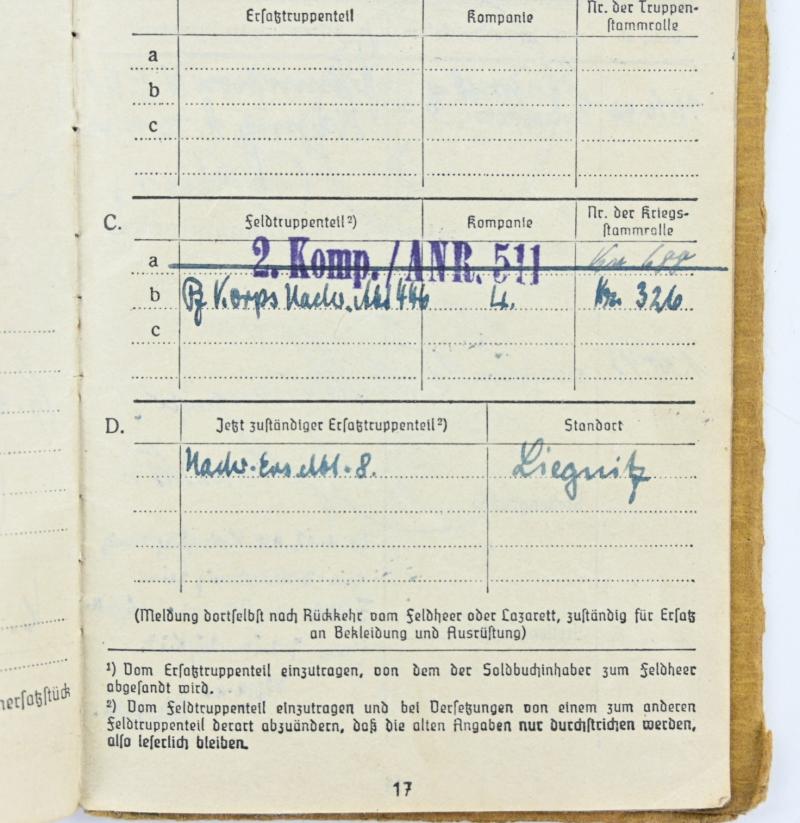 Ersatztruppenteil Kompanie Nr. der Truppen-
stammrolle
a
b
c
C. Feldtruppenteil²) Kompanie Nr. der Kriegs-
stammrolle
a 2. Komp./ANR. 511
b Pz Korps Nachr. Abt 446 4. Kr. 326
c
D. Jetzt zuständiger Ersatztruppenteil²) Standort
Nachr.-Ers Abt. 8. Liegnitz
(Meldung dortselbst nach Rückkehr vom Feldheer oder Lazarett, zuständig für Ersatz
an Bekleidung und Ausrüstung)
¹) Vom Ersatztruppenteil einzutragen, von dem der Soldbuchinhaber zum Feldheer
abgesandt wird.
²) Vom Feldtruppenteil einzutragen und bei Versetzungen von einem zum anderen
Feldtruppenteil derart abzuändern, daß die alten Angaben nur durchstrichen werden,
also leserlich bleiben.
nersatzstück
17